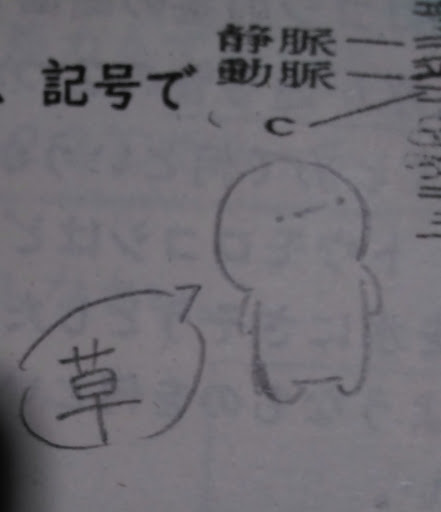 静脈
動脈
、記号で
C
草